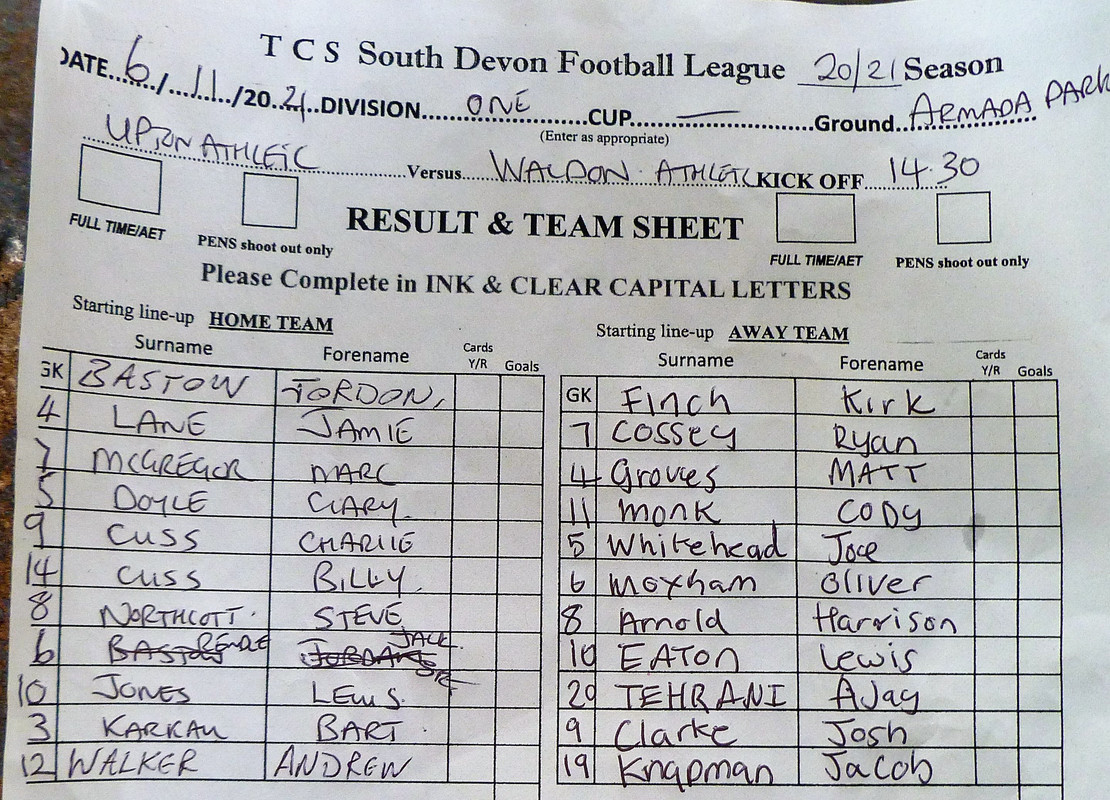 T C S South Devon Football League 20/21 Season
DATE...6./..11../20.21..DIVISION......ONE.......CUP.......—.......Ground..ARMADA PARK
(Enter as appropriate)
UPTON ATHLEIC Versus WALDON ATHLETIC KICK OFF 14.30
RESULT & TEAM SHEET
FULL TIME/AET PENS shoot out only FULL TIME/AET PENS shoot out only
Please Complete in INK & CLEAR CAPITAL LETTERS
Starting line-up HOME TEAM Starting line-up AWAY TEAM
Surname Forename Cards Y/R Goals Surname Forename Cards Y/R Goals
GK BASTOW JORDON, GK Finch Kirk
4 LANE JAMIE 7 Cossey Ryan
7 MCGREGOR MARC 4 Groves MATT
5 DOYLE 11 monk CODY
9 CUSS CHARLIE 5 Whitehead Joe
14 CUSS BILLY 6 Moxham Oliver
8 NORTHCOTT STEVE 8 Arnold Harrison
6 JACK 10 EATON Lewis
10 JONES LEWIS. 20 TEHRANI AJay
3 BART 9 Clarke Josh
12 WALKER ANDREW 19 Knapman Jacob